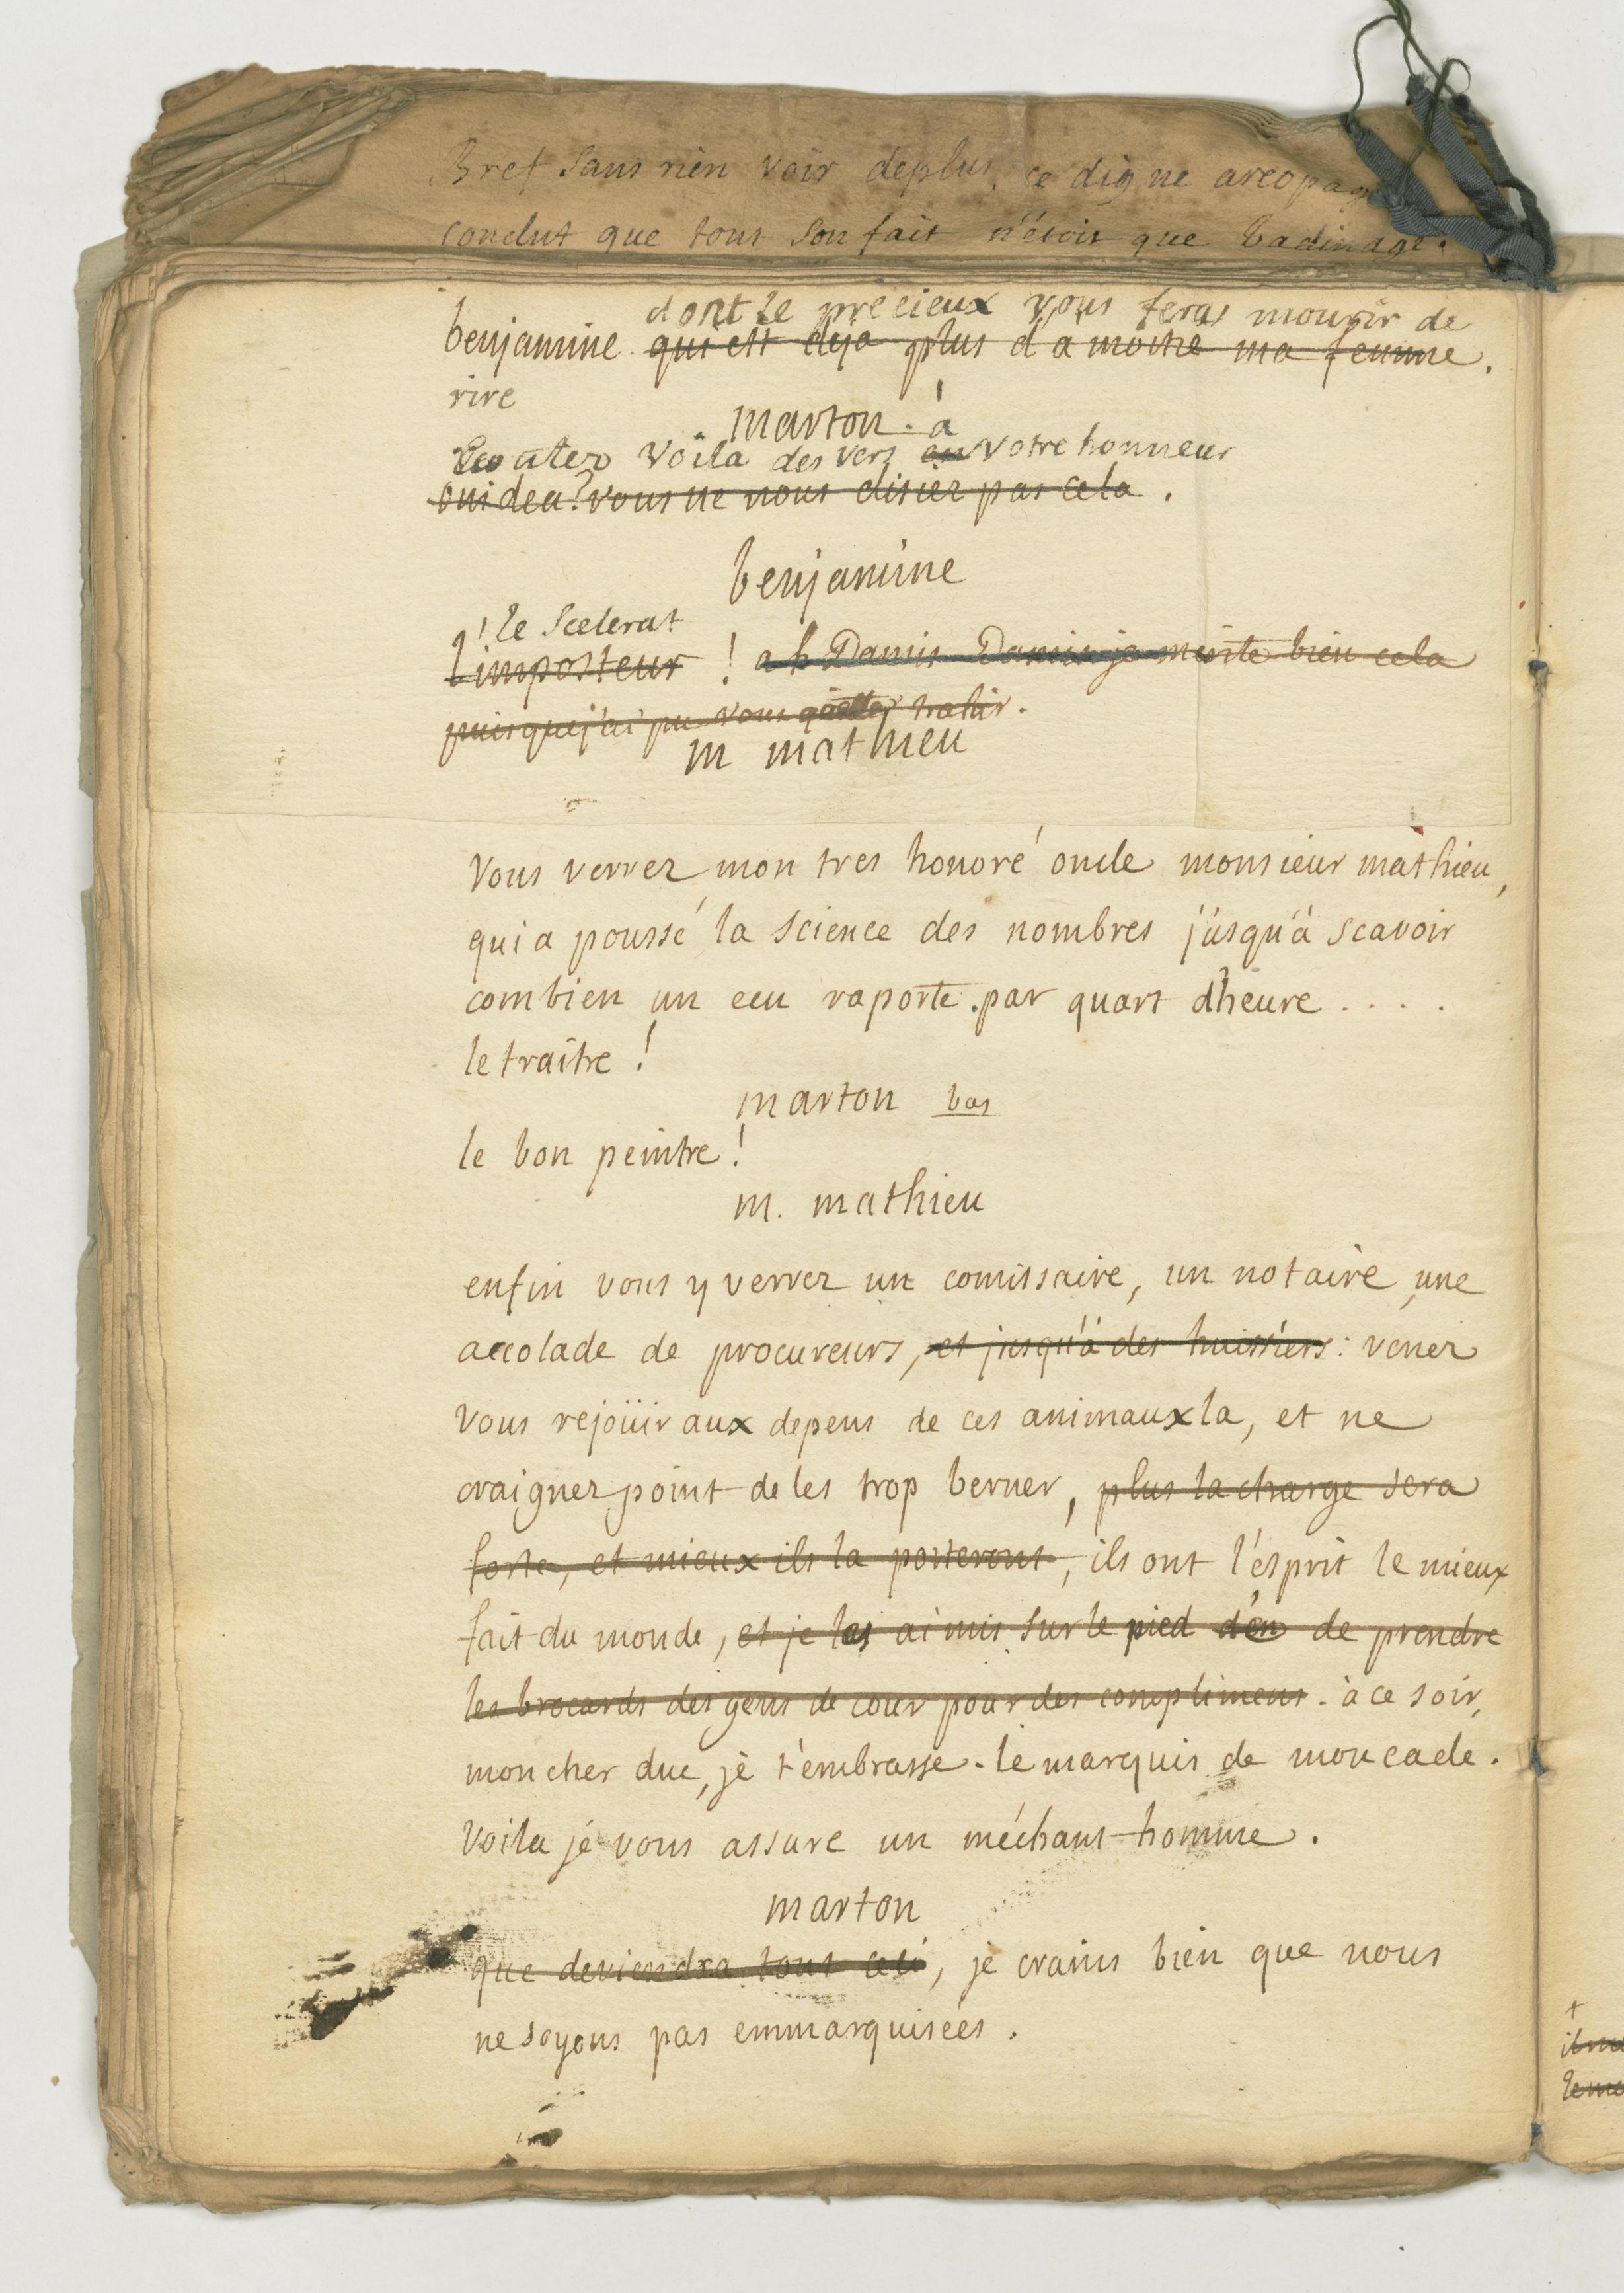 Bref sans rien voir deplus, ce digne areopag
conclut que tout son fait n'étoit que badinage.
dont le précieux vous feras mourir de
benjamine qui est deja plus d'a moitié ma femme.
rire
marton. à
Ecoutez voila des vers en votre honneur
oui dea? vous ne nous disiez pas cela.
benjamine
! le scelerat
L'imposteur ! ah Damis Damis je merite bien cela
puisque j'ai pu vous trahir.
m mathieu
Vous verrez mon tres honoré oncle monsieur mathieu,
qui a poussé la science des nombres jusqu'à scavoir
combien un ecu raporte par quart d'heure ....
le traitre !
marton bas
le bon peintre !
m. mathieu
enfin vous y verrez un comissaire, un notaire, une
accolade de procureurs, et jusqu'à des huissiers: venez
vous rejoüir aux depens de ces animaux la, et ne
craignez point de les trop berner, plus la charge sera
forte, et mieux ils la porteront, ils ont l'esprit le mieux
fait du monde, et je les ai mis sur le pied d'en de prendre
les brocards des gens de cour pour des complimens. à ce soir,
mon cher duc, je t'embrasse. le marquis de moncade.
Voila je vous assure un méchant homme.
marton
que deviendra tout ceci, je crains bien que nous
ne soyons pas emmarquisées.
+